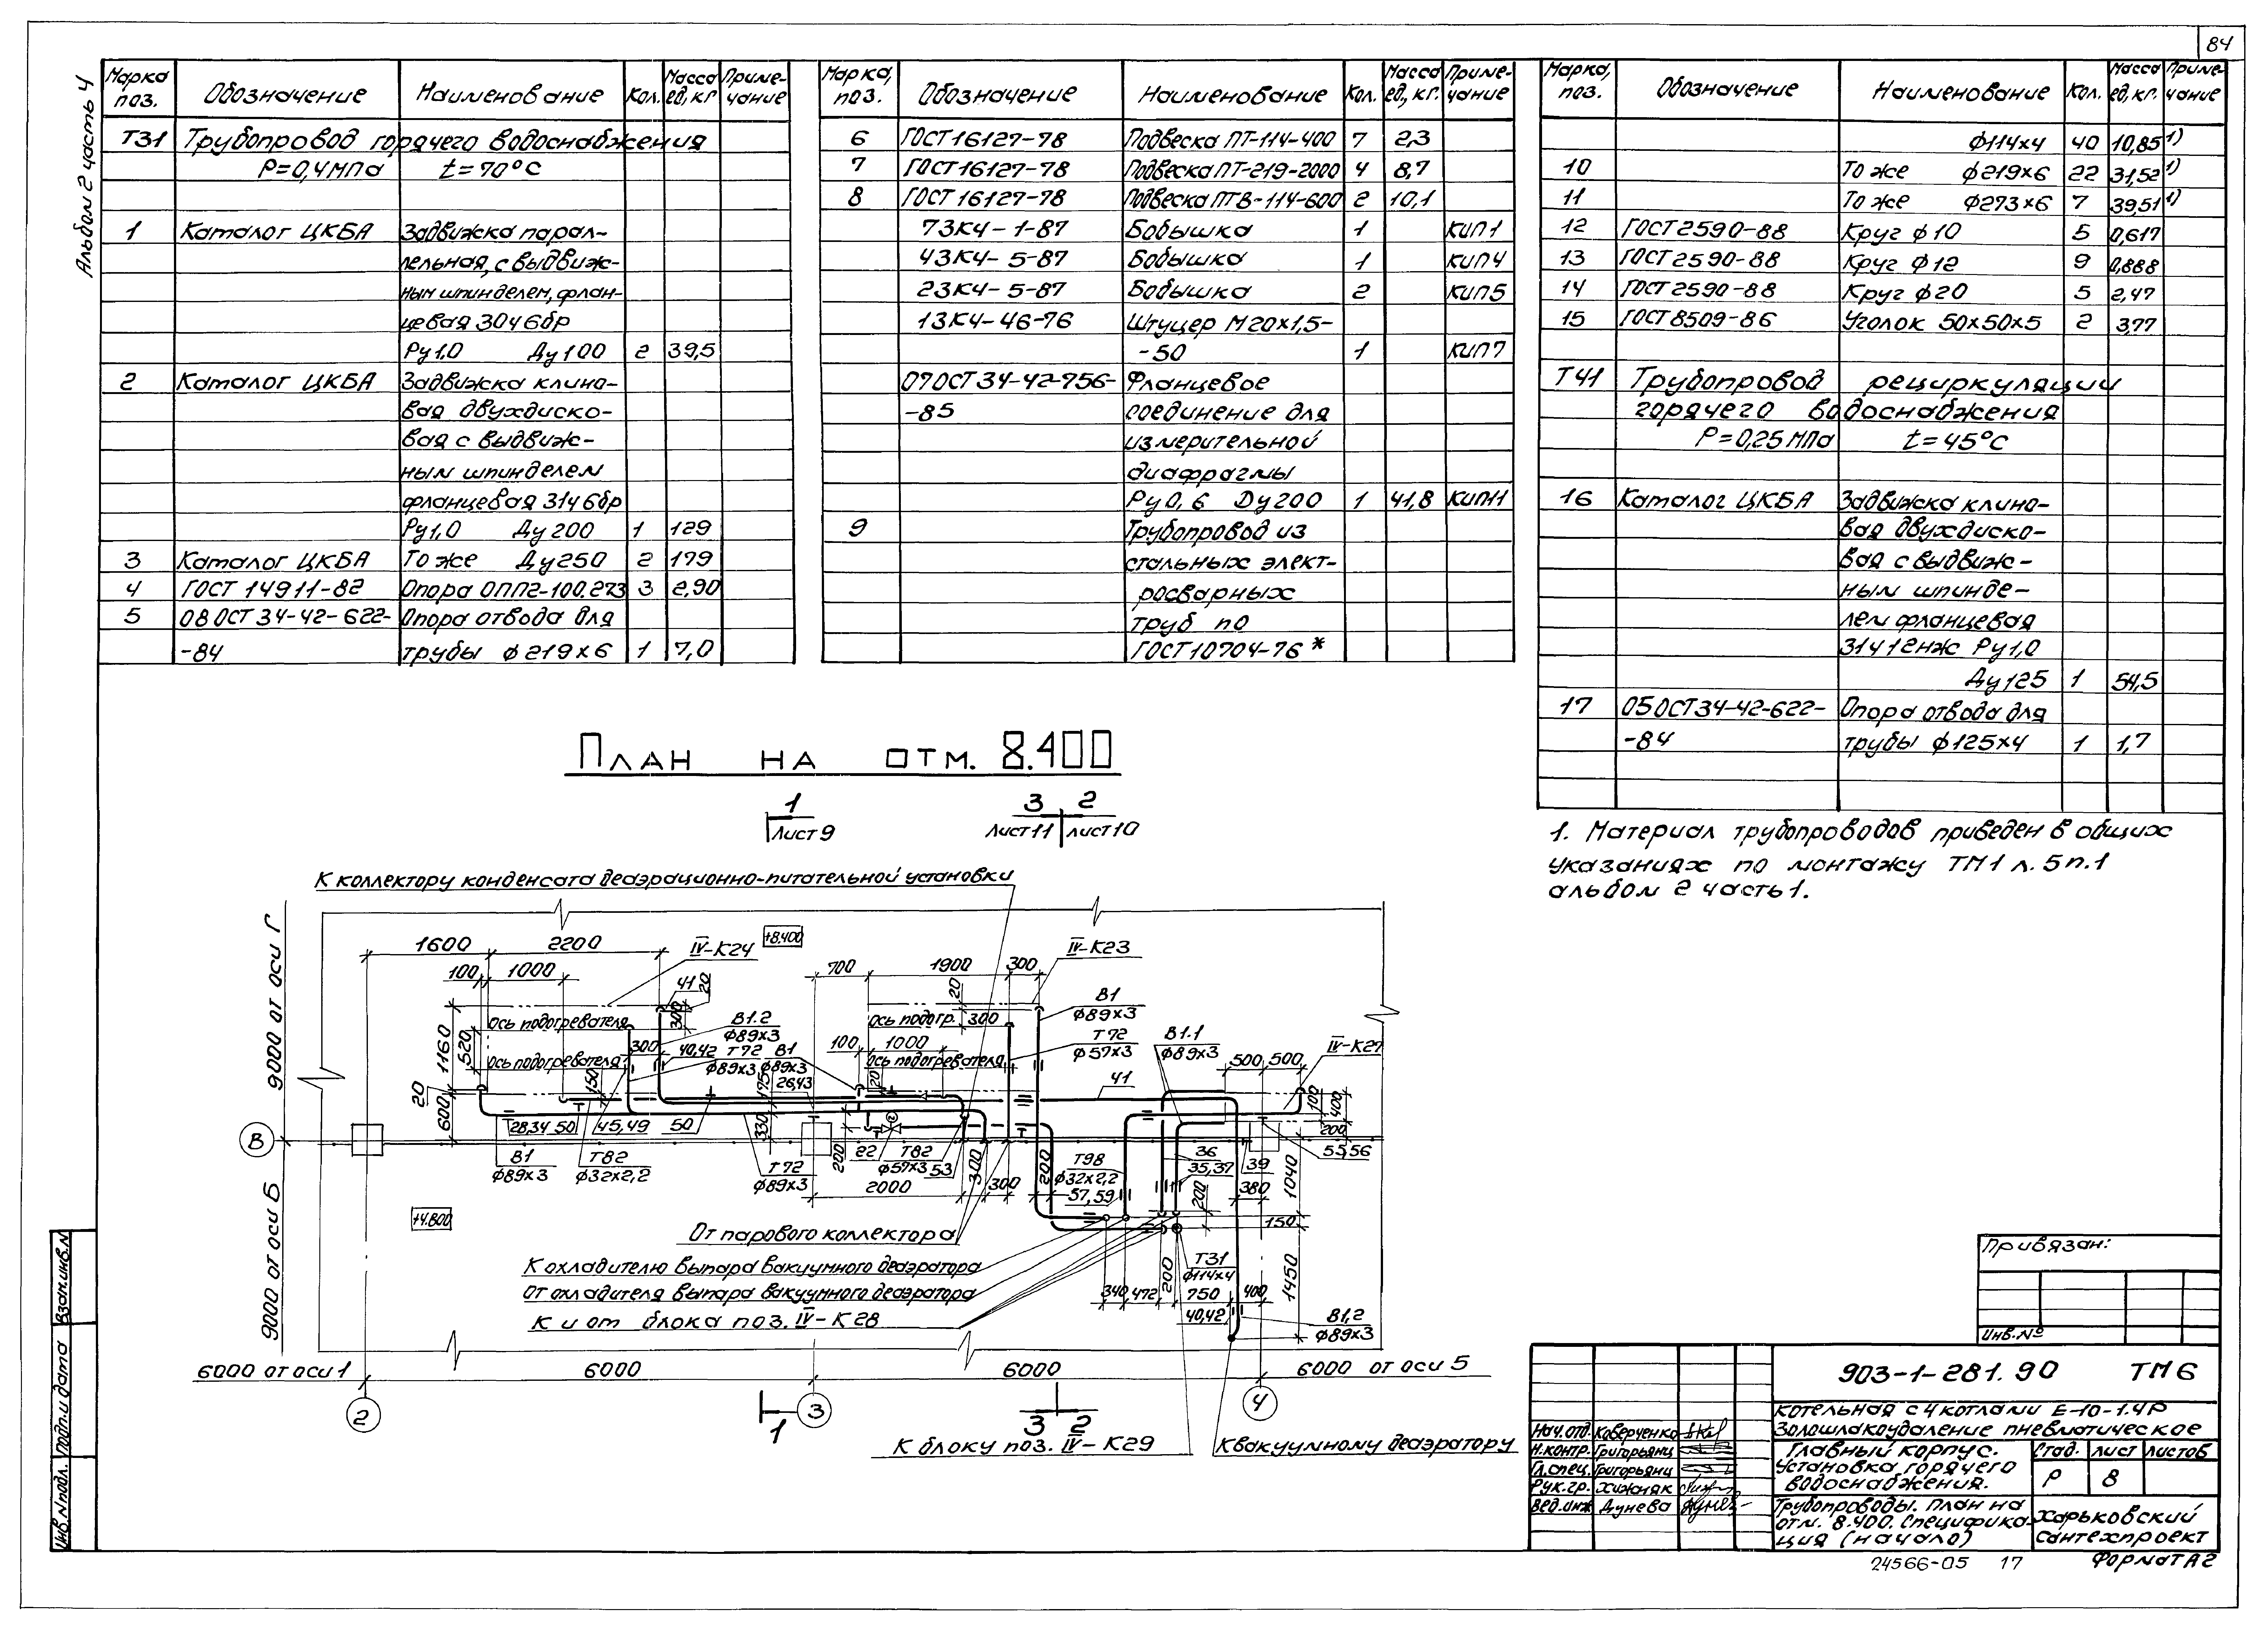 84
Альбом 2 часть 4
Марка поз. Обозначение Наименование Кол. Масса ед, кг Приме-чание
Т31 Трубопровод горячего водоснабжения
Р=0,4МПа t=70°С
1 Каталог ЦКБА Задвижка парал-
лельная, с выдвиж-
ным шпинделем, флан-
цевая 30ч6бр
Ру1,0 Ду100 2 39,5
2 Каталог ЦКБА Задвижка клино-
вая двухдиско-
вая с выдвиж-
ным шпинделем
фланцевая 31ч6бр
Ру1,0 Ду200 1 129
3 Каталог ЦКБА То же Ду250 2 179
4 ГОСТ 14911-82 Опора ОПП2-100.273 3 2,90
5 08 ОСТ 34-42-622- Опора отвода для
-84 трубы ф219х6 1 7,0
Марка, поз. Обозначение Наименование Кол. Масса ед., кг. Приме-чание
6 ГОСТ16127-78 Подвеска ПТ-114-400 7 2,3
7 ГОСТ16127-78 Подвеска ПТ-219-2000 4 8,7
8 ГОСТ16127-78 Подвеска ПТВ-114-600 2 10,1
73К4-1-87 Бобышка 1 КИП1
43К4-5-87 Бобышка 1 КИП4
23К4-5-87 Бобышка 2 КИП5
13К4-46-76 Штуцер М20х1,5-
-50 1 КИП7
07ОСТ34-42-756- Фланцевое
-85 соединение для
измерительной
диафрагмы
Ру0,6 Ду200 1 41,8 КИП11
9 Трубопровод из
стальных элект-
росварных
труб по
ГОСТ10704-76*
Марка, поз. Обозначение Наименование Кол. Масса ед, кг. Приме-чание
ф114х4 40 10,85 1)
10 То же ф219х6 22 31,52 1)
11 То же ф273х6 7 39,51 1)
12 ГОСТ2590-88 Круг ф10 5 0,617
13 ГОСТ2590-88 Круг ф12 9 0,888
14 ГОСТ2590-88 Круг ф20 5 2,47
15 ГОСТ8509-86 Уголок 50х50х5 2 3,77
Т41 Трубопровод рециркуляции
горячего водоснабжения
Р=0,25МПа t=45°С
16 Каталог ЦКБА Задвижка клино-
вая двухдиско-
вая с выдвиж-
ным шпинде-
лем фланцевая
31ч12нж Ру1,0
Ду125 1 54,5
17 05ОСТ34-42-622- Опора отвода для
-84 трубы ф125х4 1 1,7
1. Материал трубопроводов приведен в общих
указаниях по монтажу ТМ1 л.5 п.1
альбом 2 часть 1.
План на отм. 8.400
1 Лист 9
3 2
Лист 11 лист 10
К коллектору конденсата деаэрационно-питательной установки
9000 от оси Г
9000 от оси Б
1600 2200 IV-К24 +8.400
700 1900 300 IV-К23
100 1000 41 20
20
В1 ф89х3
1160 520
Ось подогревателя 300
В1.2 ф89х3
Ось подогр. 300
Т72 ф57х3
В1.1 ф89х3
IV-К27
Ось подогревателя 300 40,42
Т72 ф89х3
В1 ф89х3
100 1000
Ось подогревателя
500 500
20 600 150 175 26,43 20 41
100 400 200
28,34 50 45,49 50 330
В
В1 ф89х3
Т82 ф32х2,2
Т72 ф89х3
200 22
Т82 ф57х3
53 300 300 200
2000
Т98 ф32х2,2
57,59
36
35,37
39
55,56
380 1040
200
150
+4.800
От парового коллектора
К охладителю выпара вакуумного деаэратора
От охладителя выпара вакуумного деаэратора
К и от блока поз. IV-К28
Т31 ф114х4
200
340 472 750 400 1450
40,42
В1,2 ф89х3
6000 от оси 1 6000 6000 6000 от оси 5
2 3 4
1
3 2
К блоку поз. IV-К29
К вакуумному деаэратору
Взам.инв.N
Подп.и дата
Инв.Nподл.
Привязан:
Инв.No
903-1-281.90 ТМ6
Котельная с 4 котлами Е-10-1.4Р
Золошлакоудаление пневматическое
Нач.отд. Коверченко
Н.контр. Григорьянц
Гл.спец. Григорьянц
Рук.гр. Хижняк
Вед.инж Дунева
Главный корпус.
Установка горячего
водоснабжения.
Стад. лист листов
Р 8
Трубопроводы. План на
отм. 8.400. Специфика-
ция (начало)
Харьковский
Сантехпроект
24566-05 17 Формат А2